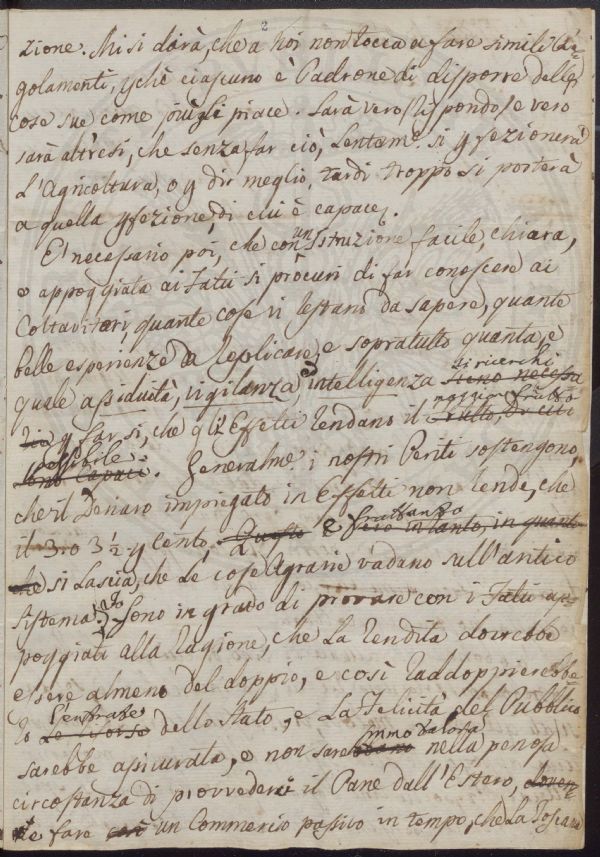 2
zione. Mi si dirà, che a noi non tocca a fare simili Re-
golamenti, pchè ciascuno è Padrone di disporre delle
cose sue come più gli piace. Sarà vero (Rispondo) e vero
sarà altresì, che senza far ciò, Lentame. si pfezionerà
L'Agricoltura, o p dir meglio, tardi troppo si porterà
a quella pfezione, di cui è capace.
E' necessario poi, che con un Istruzione facile, chiara,
e appoggiata ai Fatti si procuri di far conoscere ai
Coltavitori, quante cose vi restano da sapere, quante
belle esperienze da replicare, e sopratutto quanta, e
quale assiduità, vigilanza, e intelligenza si ricerchi sieno necessa
rie p far sì, che gl'Effetti rendano il maggior frutto frutto, di cui
possibile. sono capaci. Generalme. i nostri Periti sostengono,
che il Denaro impiegato in Effetti non rende, che
il 3. o 3 1/2 p Cento, Questo e frattanto però intanto, in quanto
che si Lascia, che Le cose Agrarie vadano sull'antico
sistema. Io sono in grado di provare con i Fatti ap-
poggiati alla Ragione, che La Rendita dovrebbe
essere almeno del doppio, e così raddoppierebbe-
ro L'entrate Le forze dello Stato, e La Felicità del Pubblico
sarebbe assicurata, e non saremmo talora nella penosa
circostanza di provvedere il Pane dall'Estero, doven
e fare così un Commercio passivo in tempo, che La Toscana